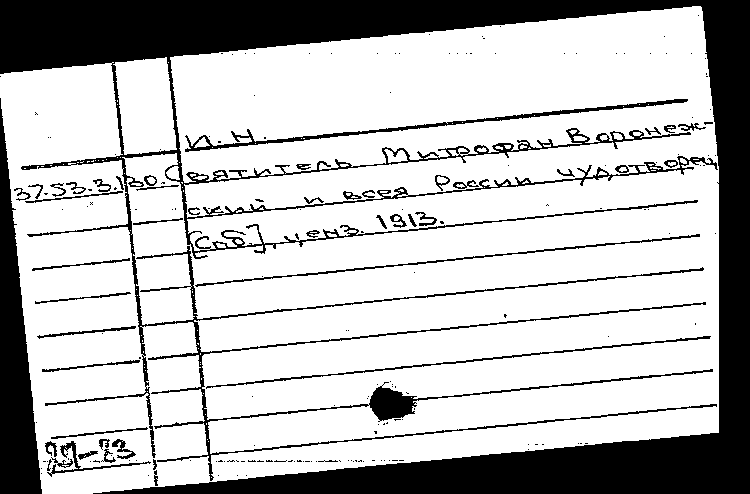 И. Н.
37.53.3.130. Святитель Митрофан Воронеж-
ский и всея России чудотворец
[Спб.], ценз. 1913.